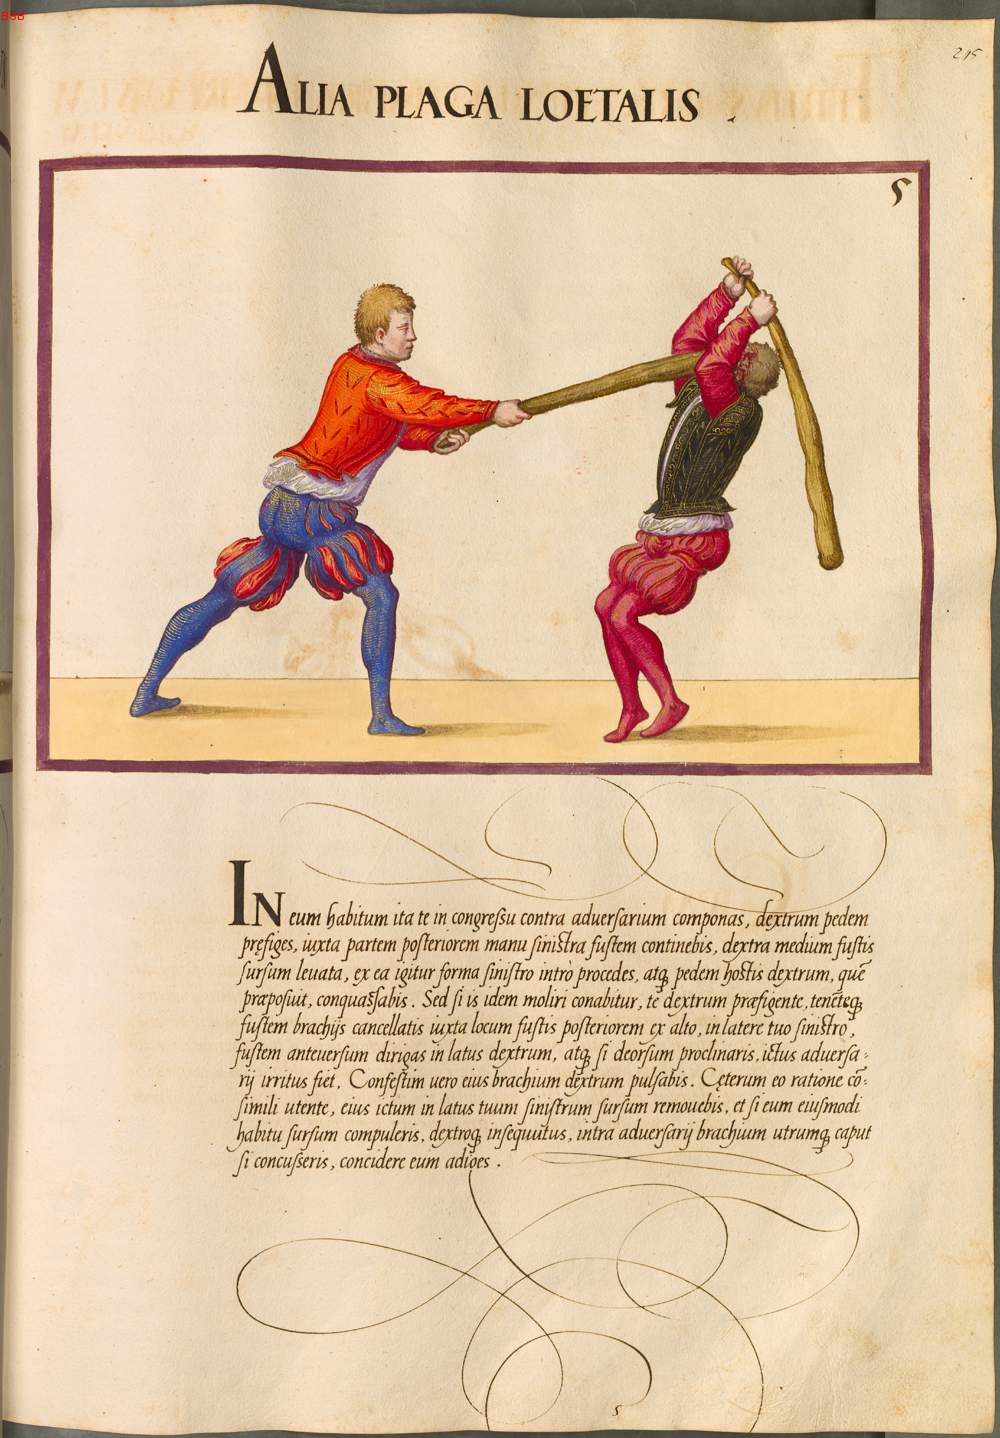 858
215
ALIA PLAGA LOETALIS .
5
IN eum habitum ita te in congreſsu contra aduerſarium componas, dextrum pedem
pręfiges, iuxta partem poſteriorem manu ſiniſtra fuſtem continebis, dextra medium fuſtis
ſurſum leuata, ex ea igitur forma ſiniſtro intrò procedes, atq; pedem hoſtis dextrum, quē
præpoſuit, conquaſsabis. Sed ſi is idem moliri conabitur, te dextrum præfigente, tenēteq;
fuſtem brachijs cancellatis iuxta locum fuſtis poſteriorem ex alto, in latere tuo ſiniſtro,
fuſtem anteuerſum dirigas in latus dextrum, atq; ſi deorſum proclinaris, ictus aduerſa:
rij irritus fiet. Confeſtim uero eius brachium dextrum pulſabis. Cęterum eo ratione cō:
ſimili utente, eius ictum in latus tuum ſiniſtrum ſurſum remouebis, et ſi eum eiuſmodi
habitu ſurſum compuleris, dextroq; inſequutus, intra aduerſarij brachium utrumq; caput
ſi concuſseris, concidere eum adiges .
5